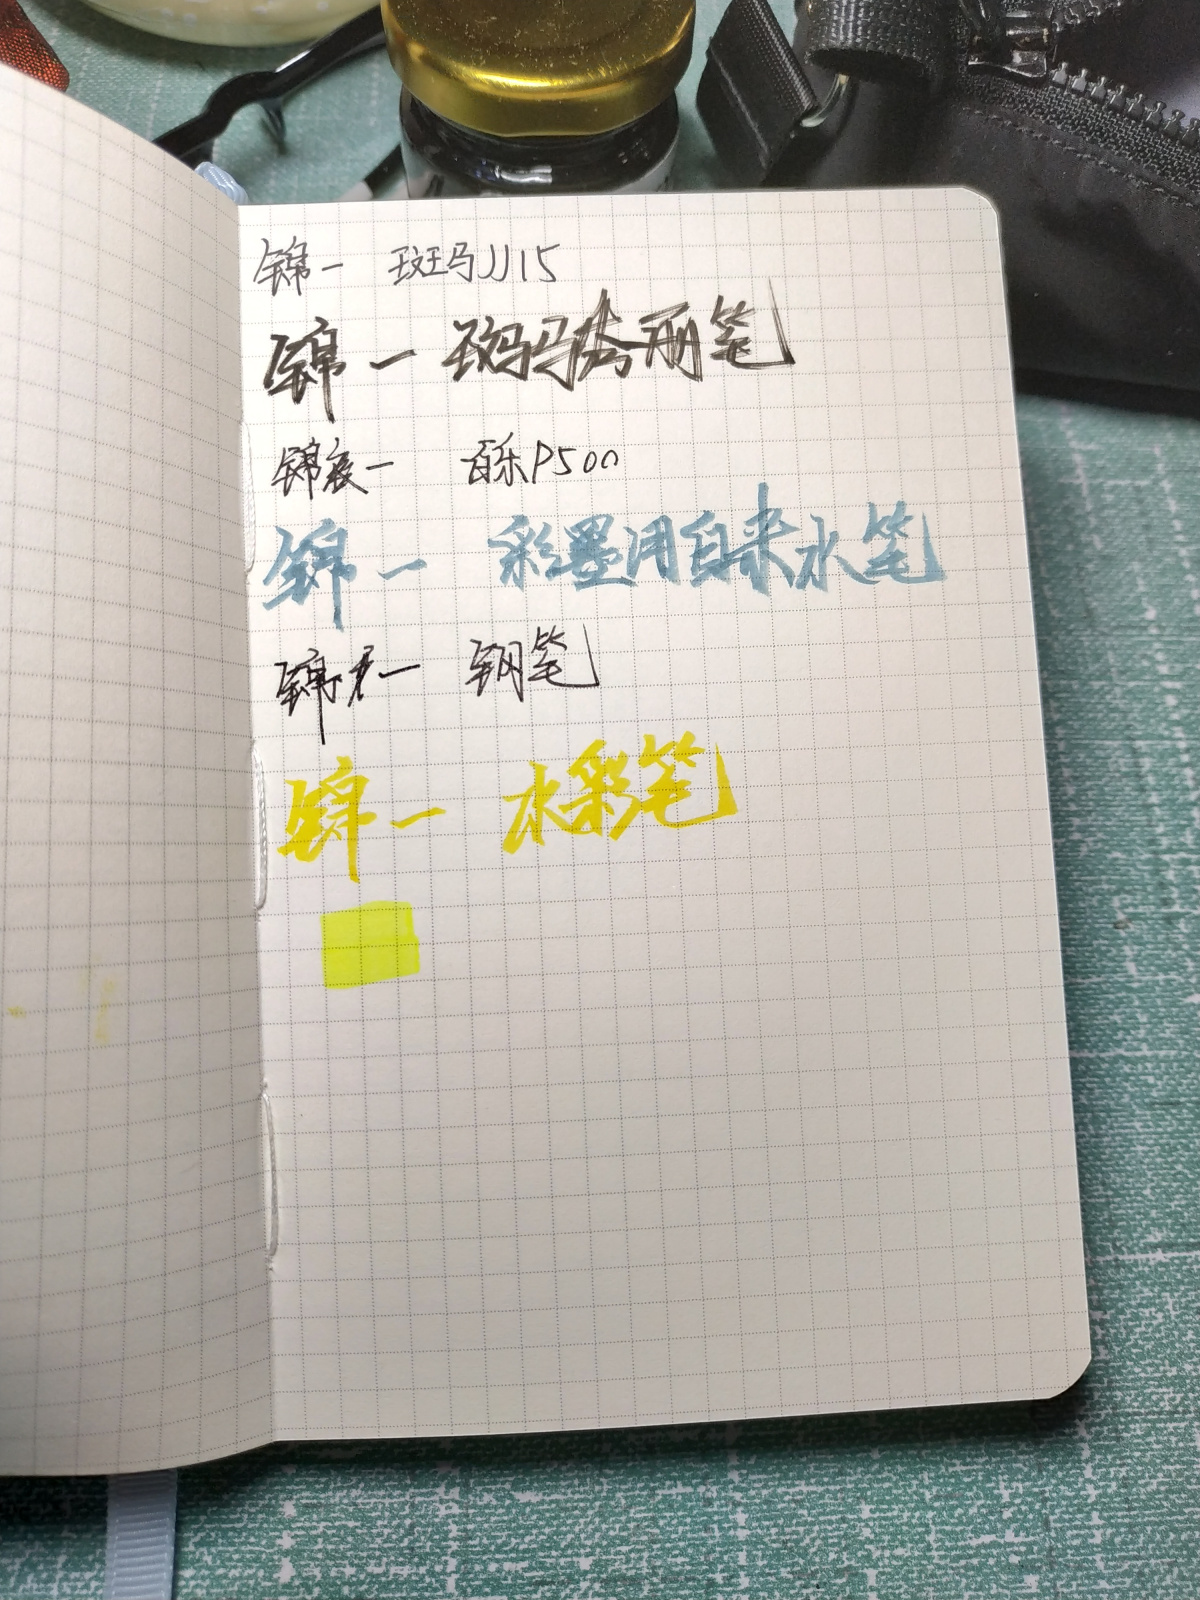 锦一 斑马JJ15
锦一 斑马秀丽笔
锦衣一 百乐P500
锦一 彩墨用自来水笔
锦一 钢笔
锦一 水彩笔